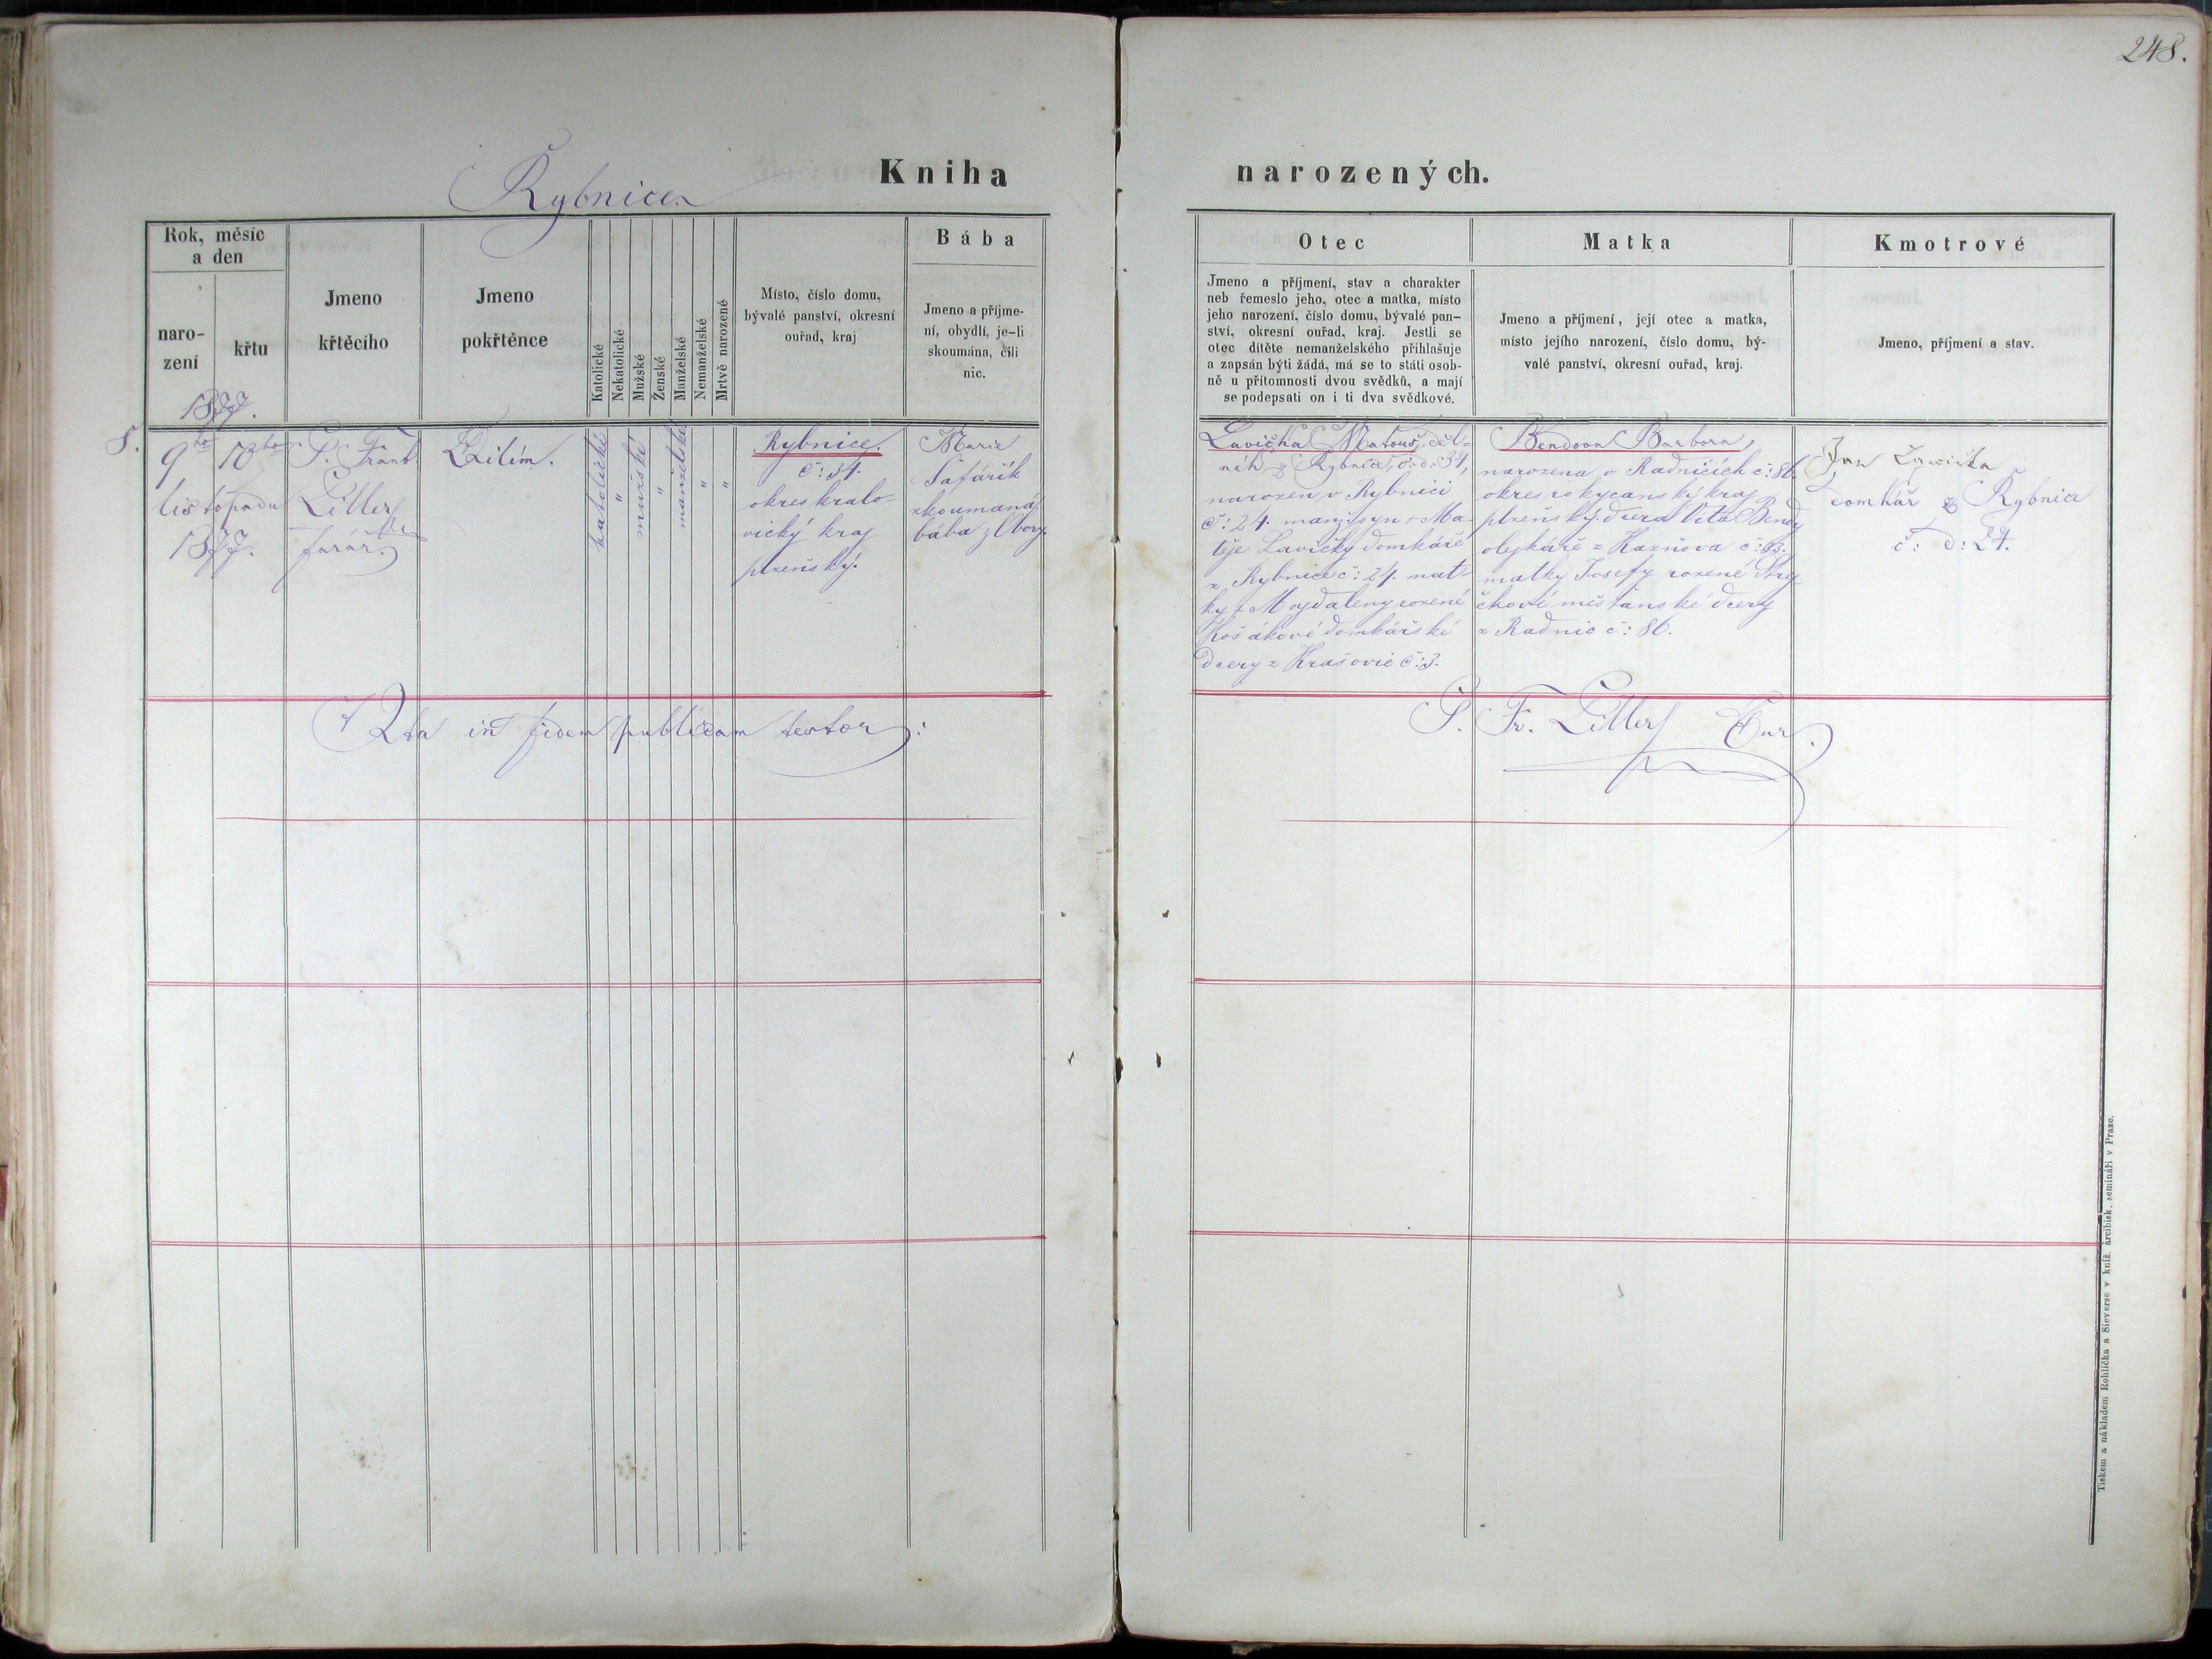 248.
Rybnice
Kniha
narozených.
Rok, měsíc
a den
naro-
zení
křtu
1877.
Jmeno
křtěcího
Jmeno
pokřtěnce
Katolické
Nekatolické
Mužské
Ženské
Manželské
Nemanželské
Mrtvě narozené
Místo, číslo domu,
bývalé panství, okresní
ouřad, kraj
Bába
Jmeno a příjme-
ní, obydlí, je-li
skoumána, čili
nic.
Otec
Jmeno a příjmení, stav a charakter
neb řemeslo jeho, otec a matka, místo
jeho narození, číslo domu, bývalé pan-
ství, okresní ouřad, kraj. Jestli se
otec dítěte nemanželského přihlašuje
a zapsán býti žádá, má se to státi osob-
ně u přítomnosti dvou svědků, a mají
se podepsati on i ti dva svědkové.
Matka
Jmeno a příjmení, její otec a matka,
místo jejího narození, číslo domu, bý-
valé panství, okresní ouřad, kraj.
Kmotrové
Jmeno, příjmení a stav.
8.
9ho
listopadu
1877.
10ho
P. Frant.
Liller
farář.
Vilím.
katolické
"
mužské
"
manželské
"
"
Rybnice.
č: 34.
okres kralo-
vický kraj
plzeňský.
Marie
Šafářík
zkoumaná
bába z Obory.
Lavička Matouš, děl-
ník z Rybnice, č: d: 34,
narozen v Rybnici
č: 24. manž. syn + Ma-
těje Lavičky domkáře
z Rybnice č: 24. mat-
ky + Majdaleny rozené
Košákové domkářské
dcery z Krašovic č: 3.
Bendova Barbora,
narozena v Radničích č: 86.
okres rokycanský kraj
plzeňský. dcera Víta Bendy
olejkáře z Kaznova č:
matky Josefy rozené
měšťanské dcery
z Radnic č: 86.
Jan Lawička
domkář z Rybnice
č: d: 24.
in fidem publicam testor:
P. Fr. Liller Cur.
Tiskem a nákladem Rohlíčka a Sieverse v kníž. arcibisk. semináři v Praze.